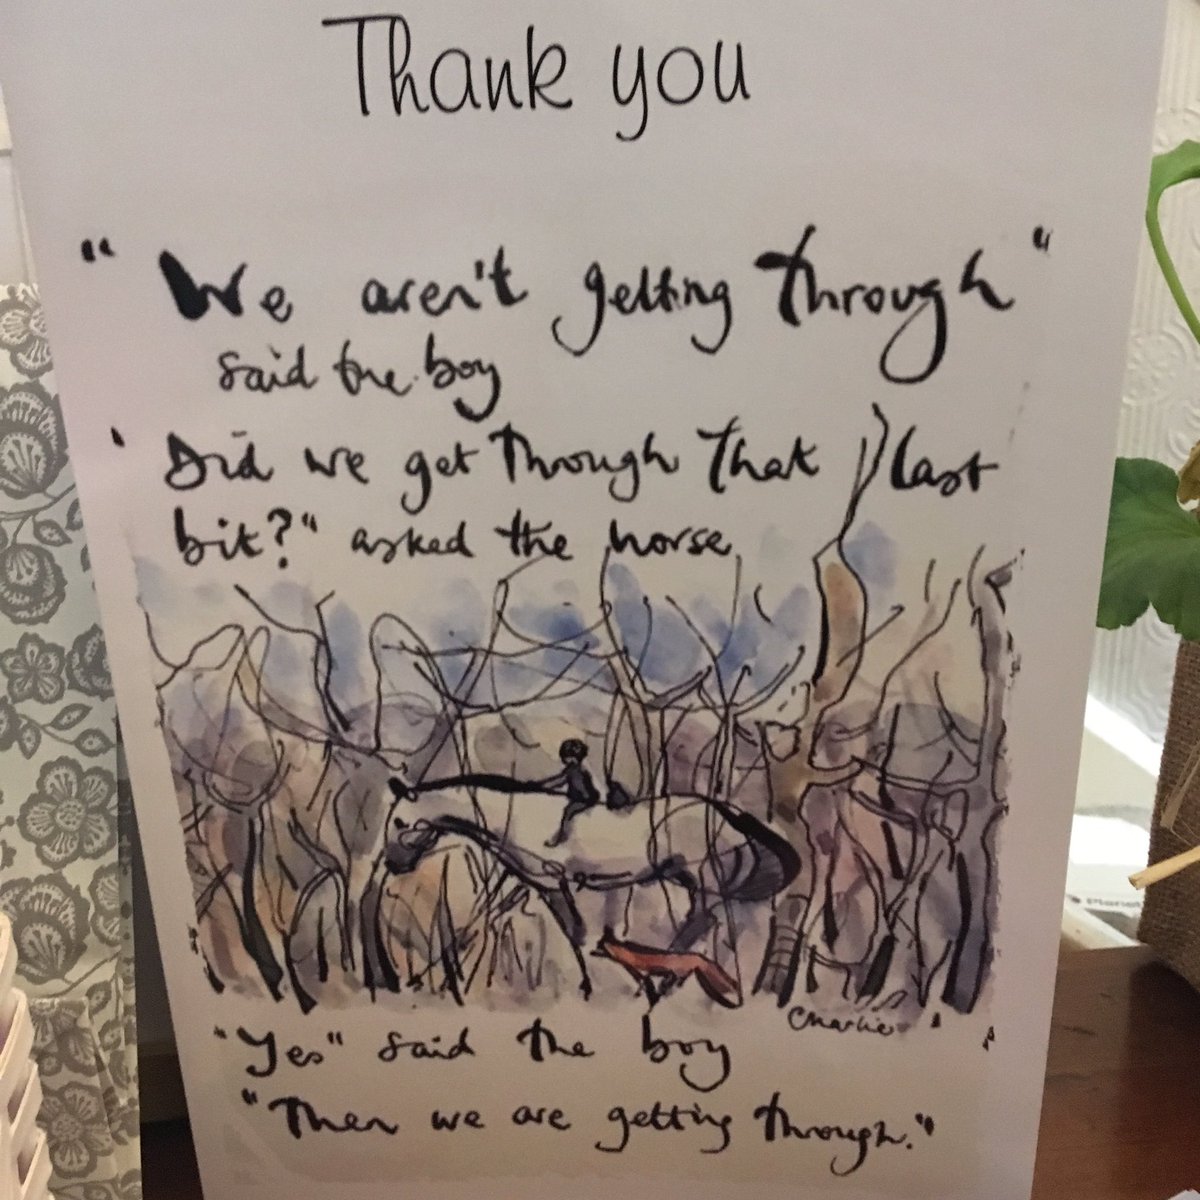 Thank you
"We aren't getting through"
said the boy
'Did we get through that last
bit?" asked the horse
Charlie
"Yes" said the boy
"Then we are getting through."